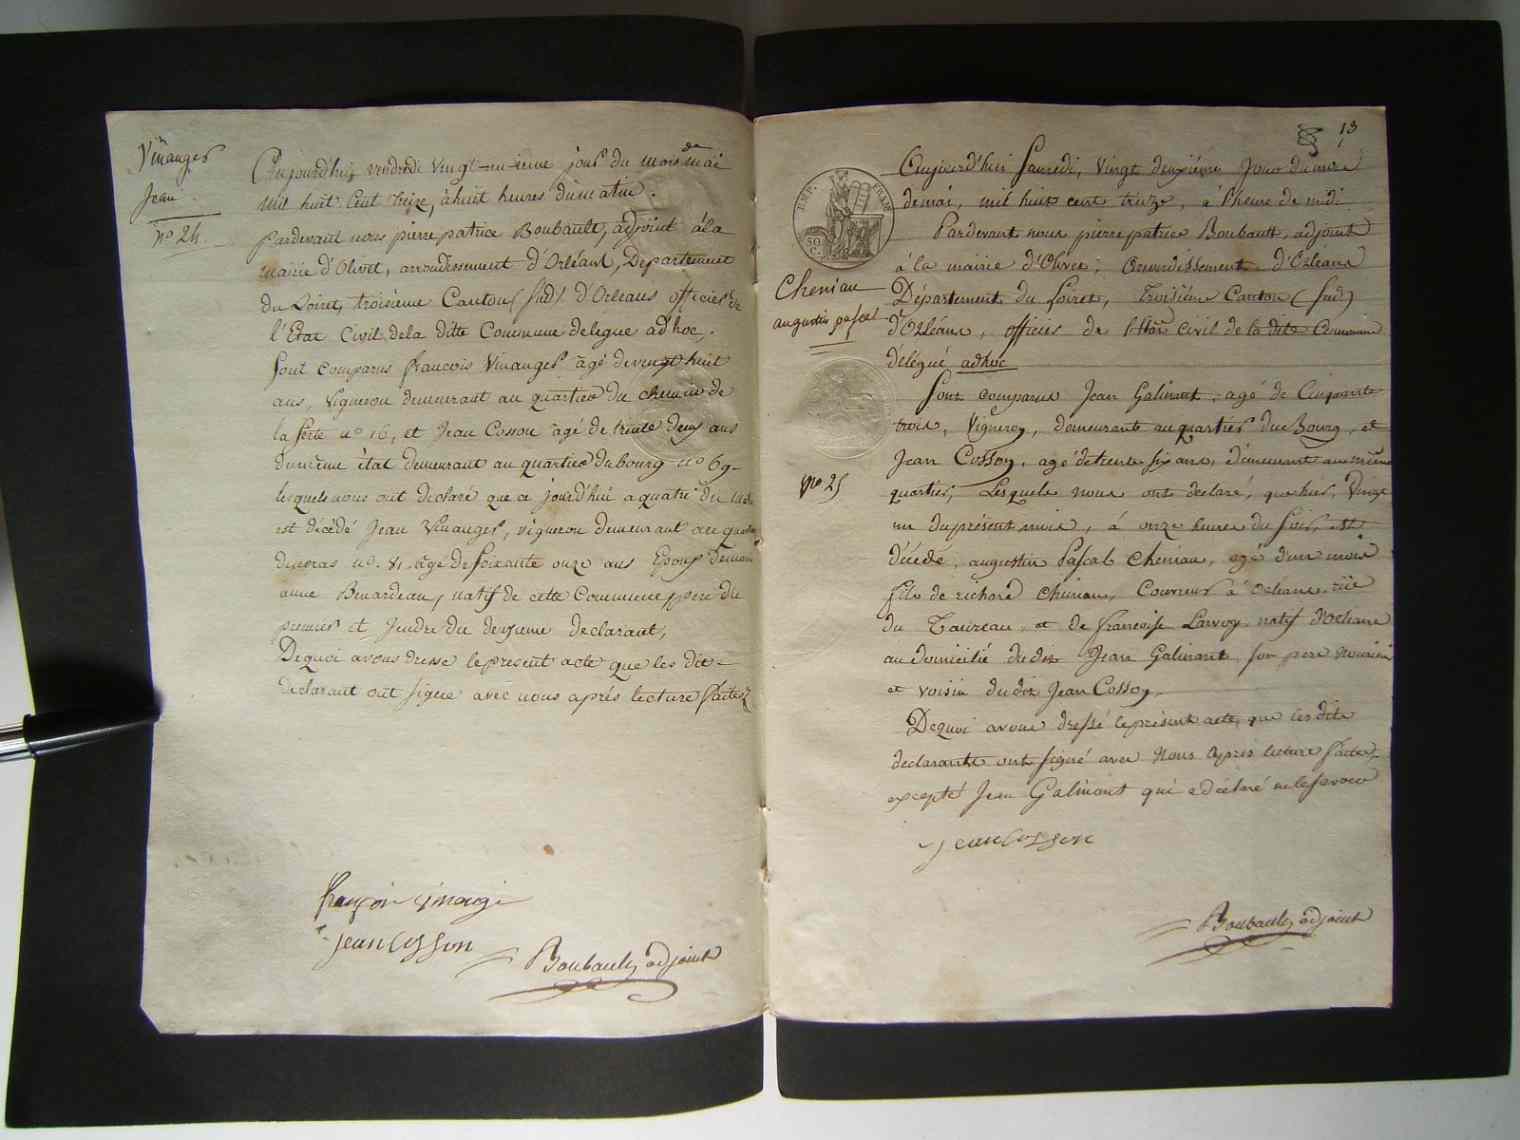 Vinanger
Jean
nº 24.
Aujourd'hui vendredi vingt-un ieme jour du mois de mai
mil huit Cent treize, à huit heures du matin.
Pardevant nous pierre patrice Boubault, adjoint à la
mairie d'Olivet, arrondissement d'Orléans, Departement
du Loiret, troisieme Canton (sud) d'Orleans officier de
l'Etat Civil dela ditte Commune delegué ad hoc,
Sont comparus francois Vinanger âgé de vingt huit
ans, Vigneron demeurant au quartier du chemin de
la ferté nº 16, et Jean Cosson âgé de trente deux ans
du même état demeurant au quartier du bourg nº 69
lesquels nous ont declaré que ce jourd'hui a quatre du
est décédé Jean Vinanger, vigneron demeurant au
nº âgé de soixante onze ans Epoux de
anne Benardeau, natif de cette Commune, pere du
premier et Jendre du deuxieme declarant,
De quoi avons dressé le present acte que les dit
declarant ont signé avec nous aprés lecture faite
françoi
Jean Cosson
Boubault, adjoint
13
EMP. FRAN.
50
C.
Cheniau
augustin pascal
nº 25
Aujourd'hui Samedi, vingt deuxiéme Jour du mois
de mai, mil huit cent treize, à l'heure de midi
Pardevant nous pierre patrice Boubault, adjoint
à la mairie d'Olivet, arrondissement d'Orléans
Département du Loiret, troisiéme Canton (sud)
d'Orléans, officier de l'état civil de la dite Commune
délégué adhoc
Sont comparus Jean Galinant, agé de Cinquante
trois, Vigneron, demeurante au quartier du Bourg, et
Jean Cosson, agé de trente six ans, demeurant au même
quartier, Lesquels nous ont declaré, que hier, Vingt
un du présent mois, à onze heures du soir, est
décédé, augustin Pascal Cheniau, agé d'un mois
fils de richard Cheniau, Couvreur à Orleans, rüe
du Taureau, et de francoise natif d'Orleans
au domicilié du dit Jean Galinant, son pere Nouricier
et voisin du dit Jean Cosson,
De quoi avons dressé le présent acte, que les dits
declarants ont signé avec Nous après lecture faite,
excepté Jean Galinant qui a déclaré ne le savoir
Jean Cosson
Boubault, adjoint